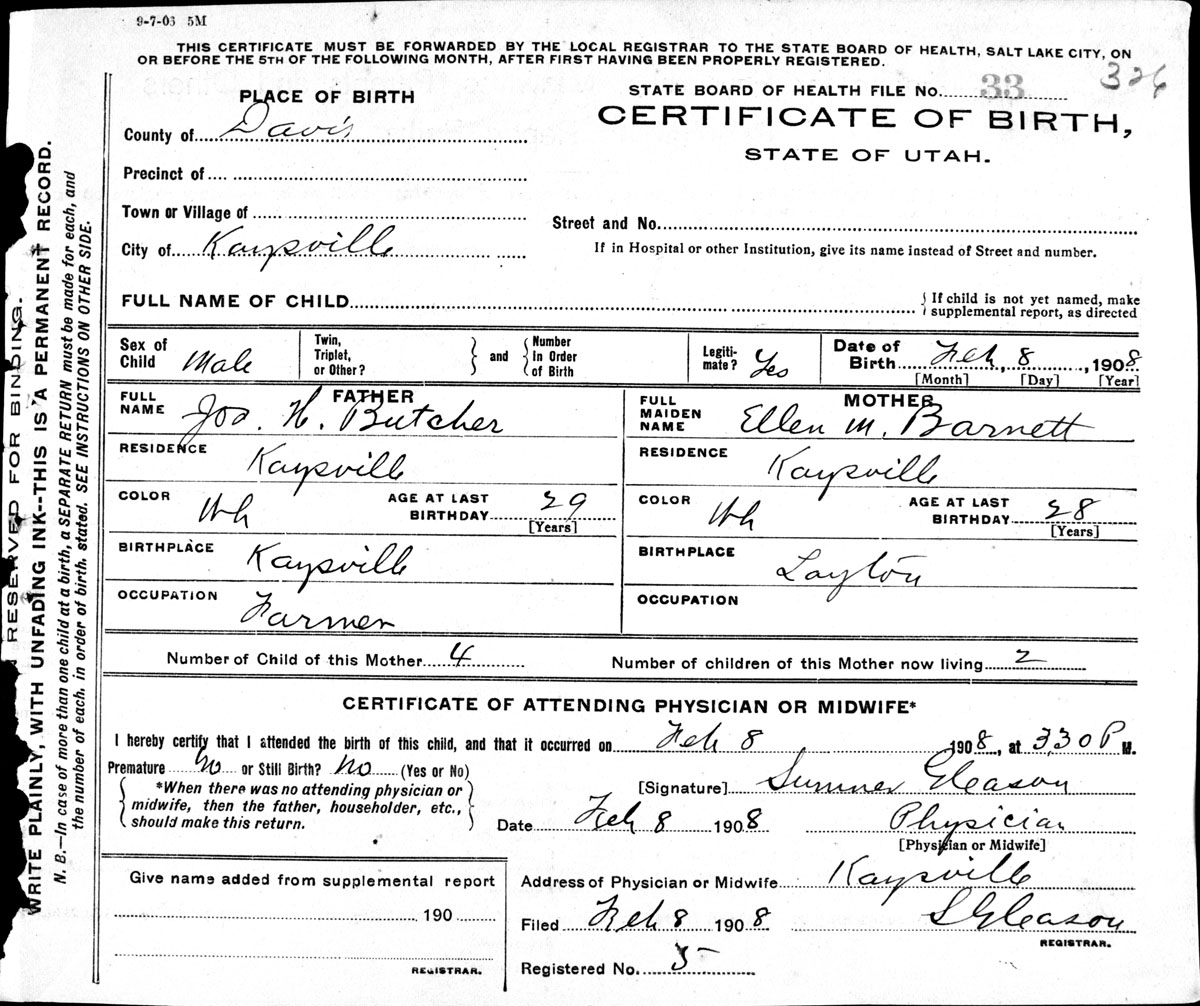 9-7-06 5M
THIS CERTIFICATE MUST BE FORWARDED BY THE LOCAL REGISTRAR TO THE STATE BOARD OF HEALTH, SALT LAKE CITY, ON
OR BEFORE THE 5TH OF THE FOLLOWING MONTH, AFTER FIRST HAVING BEEN PROPERLY REGISTERED.
326
STATE BOARD OF HEALTH FILE No. 33
PLACE OF BIRTH
CERTIFICATE OF BIRTH,
STATE OF UTAH.
County of Davis
Precinct of
Town or Village of
Street and No.
City of Kaysville
If in Hospital or other Institution, give its name instead of Street and number.
FULL NAME OF CHILD
{ If child is not yet named, make
supplemental report, as directed
Sex of Child Male
Twin, Triplet, or Other? } and { Number In Order of Birth
Legiti-mate? Yes
Date of Birth Feb, 8, 1908
[Month] [Day] [Year]
FATHER
FULL NAME Jos. H. Butcher
MOTHER
FULL MAIDEN NAME Ellen M. Barnett
RESIDENCE Kaysville
RESIDENCE Kaysville
COLOR Wh AGE AT LAST BIRTHDAY 29 [Years]
COLOR Wh AGE AT LAST BIRTHDAY 28 [Years]
BIRTHPLACE Kaysville
BIRTHPLACE Layton
OCCUPATION Farmer
OCCUPATION
Number of Child of this Mother 4 Number of children of this Mother now living 2
CERTIFICATE OF ATTENDING PHYSICIAN OR MIDWIFE*
I hereby certify that I attended the birth of this child, and that it occurred on Feb 8 1908, at 3.30 P M.
Premature No or Still Birth? No (Yes or No)
{ *When there was no attending physician or
midwife, then the father, householder, etc.,
should make this return. }
[Signature] Sumner Gleason
Date Feb 8 1908 Physician
[Physician or Midwife]
Give name added from supplemental report
190
REGISTRAR.
Address of Physician or Midwife Kaysville
Filed Feb 8 1908 S Gleason
REGISTRAR.
Registered No. 5
RESERVED FOR BINDING.
WRITE PLAINLY, WITH UNFADING INK--THIS IS A PERMANENT RECORD.
N. B.—In case of more than one child at a birth, a SEPARATE RETURN must be made for each, and
the number of each, in order of birth, stated. SEE INSTRUCTIONS ON OTHER SIDE.